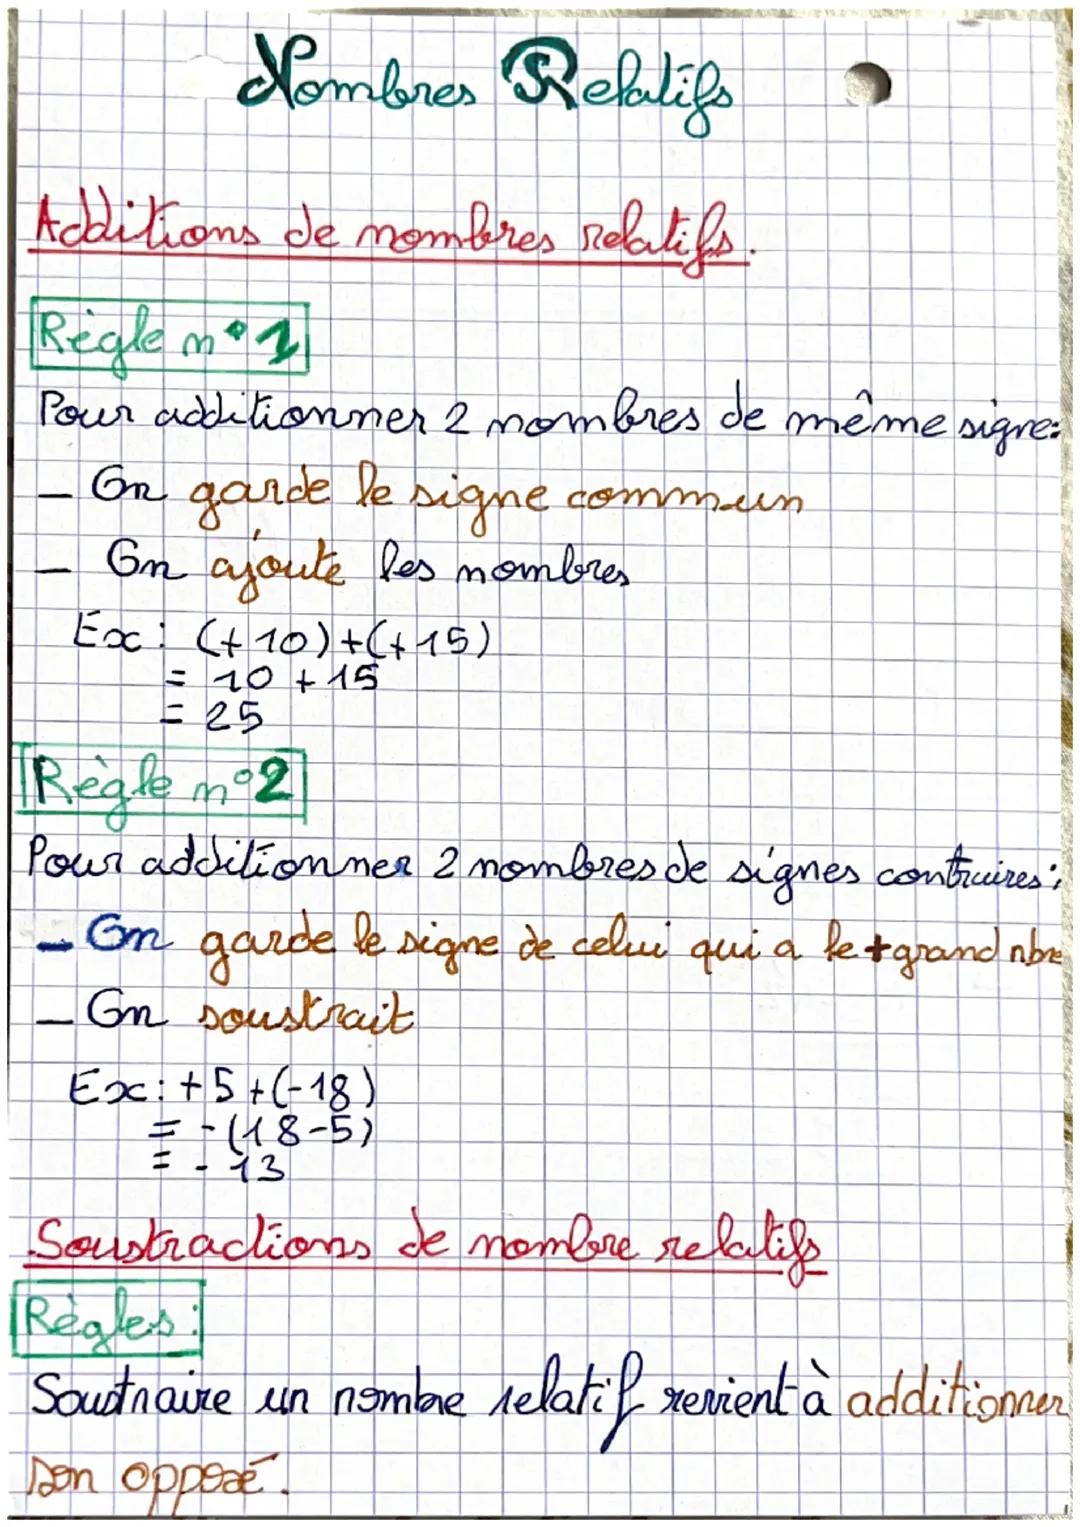 Nombres Relatifs
Additions de nombres relatifs.
Règle n°1
Pour additionner 2 nombres de même signe:
- On garde le signe commun
- On ajoute les nombres
Ex: (+10)+(+15)
= 10 + 15
= 25
Règle n°2
Pour additionner 2 nombres de signes contraires:
- On garde le signe de celui qui a le + grand nbre
- On soustrait
Ex: +5+(-18)
= -(18-5)
= - 13
Soustractions de nombre relatifs
Règles:
Soustraire un nombre relatif revient à additionner
son opposé.